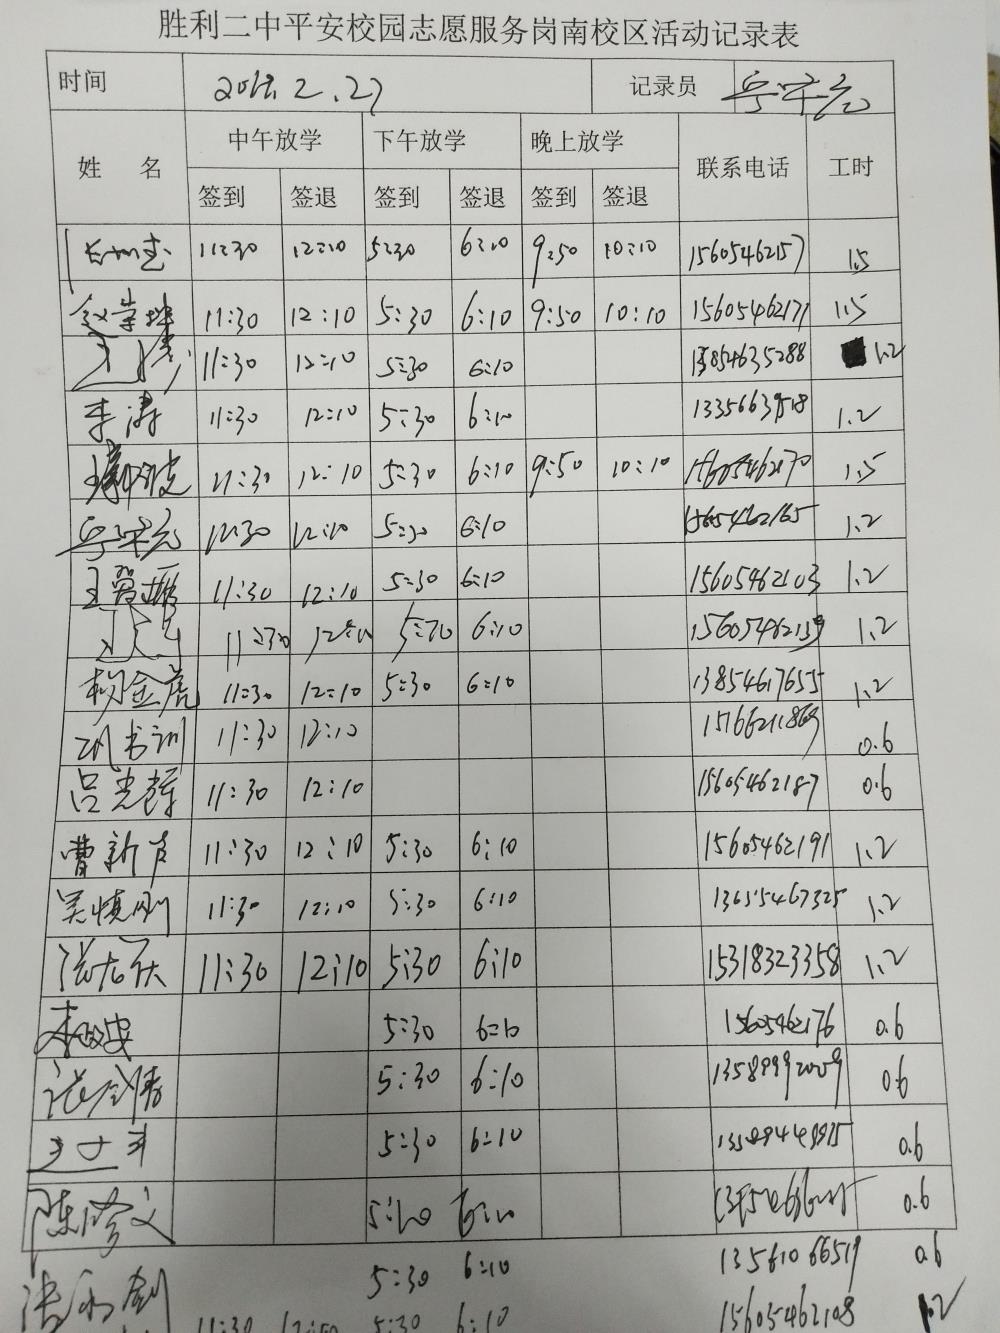 胜利二中平安校园志愿服务岗南校区活动记录表
时间 2018.2.27 记录员
姓 名 中午放学 下午放学 晚上放学 联系电话 工时
签到 签退 签到 签退 签到 签退
11:30 12:10 5:30 6:10 9:50 10:10 15605462157 1.5
赵崇 11:30 12:10 5:30 6:10 9:50 10:10 15605462171 1.5
王 11:30 12:10 5:30 6:10 13854635288 1.2
李涛 11:30 12:10 5:30 6:10 1.2
11:30 12:10 5:30 6:10 9:50 10:10 15605462170 1.5
12:10 5:30 6:10 15605462165 1.2
王爱 11:30 12:10 5:30 6:10 15605462103 1.2
11:30 12:10 5:30 6:10 1.2
杨金虎 11:30 12:10 5:30 6:10 13854617655 1.2
巩书训 11:30 12:10 15766211869 0.6
吕光辉 11:30 12:10 15605462187 0.6
曹新 11:30 12:10 5:30 6:10 15605462191 1.2
吴慎刚 11:30 12:10 5:30 6:10 13655467325 1.2
张 11:30 12:10 5:30 6:10 15318323358 1.2
李政安 5:30 6:10 15605462176 0.6
张 5:30 6:10 13589992009 0.6
王 5:30 6:10 0.6
陈 文 0.6
张 剑 5:30 6:10 13561066519 0.6
11:30 12:50 5:30 6:10 15605462108 1.2